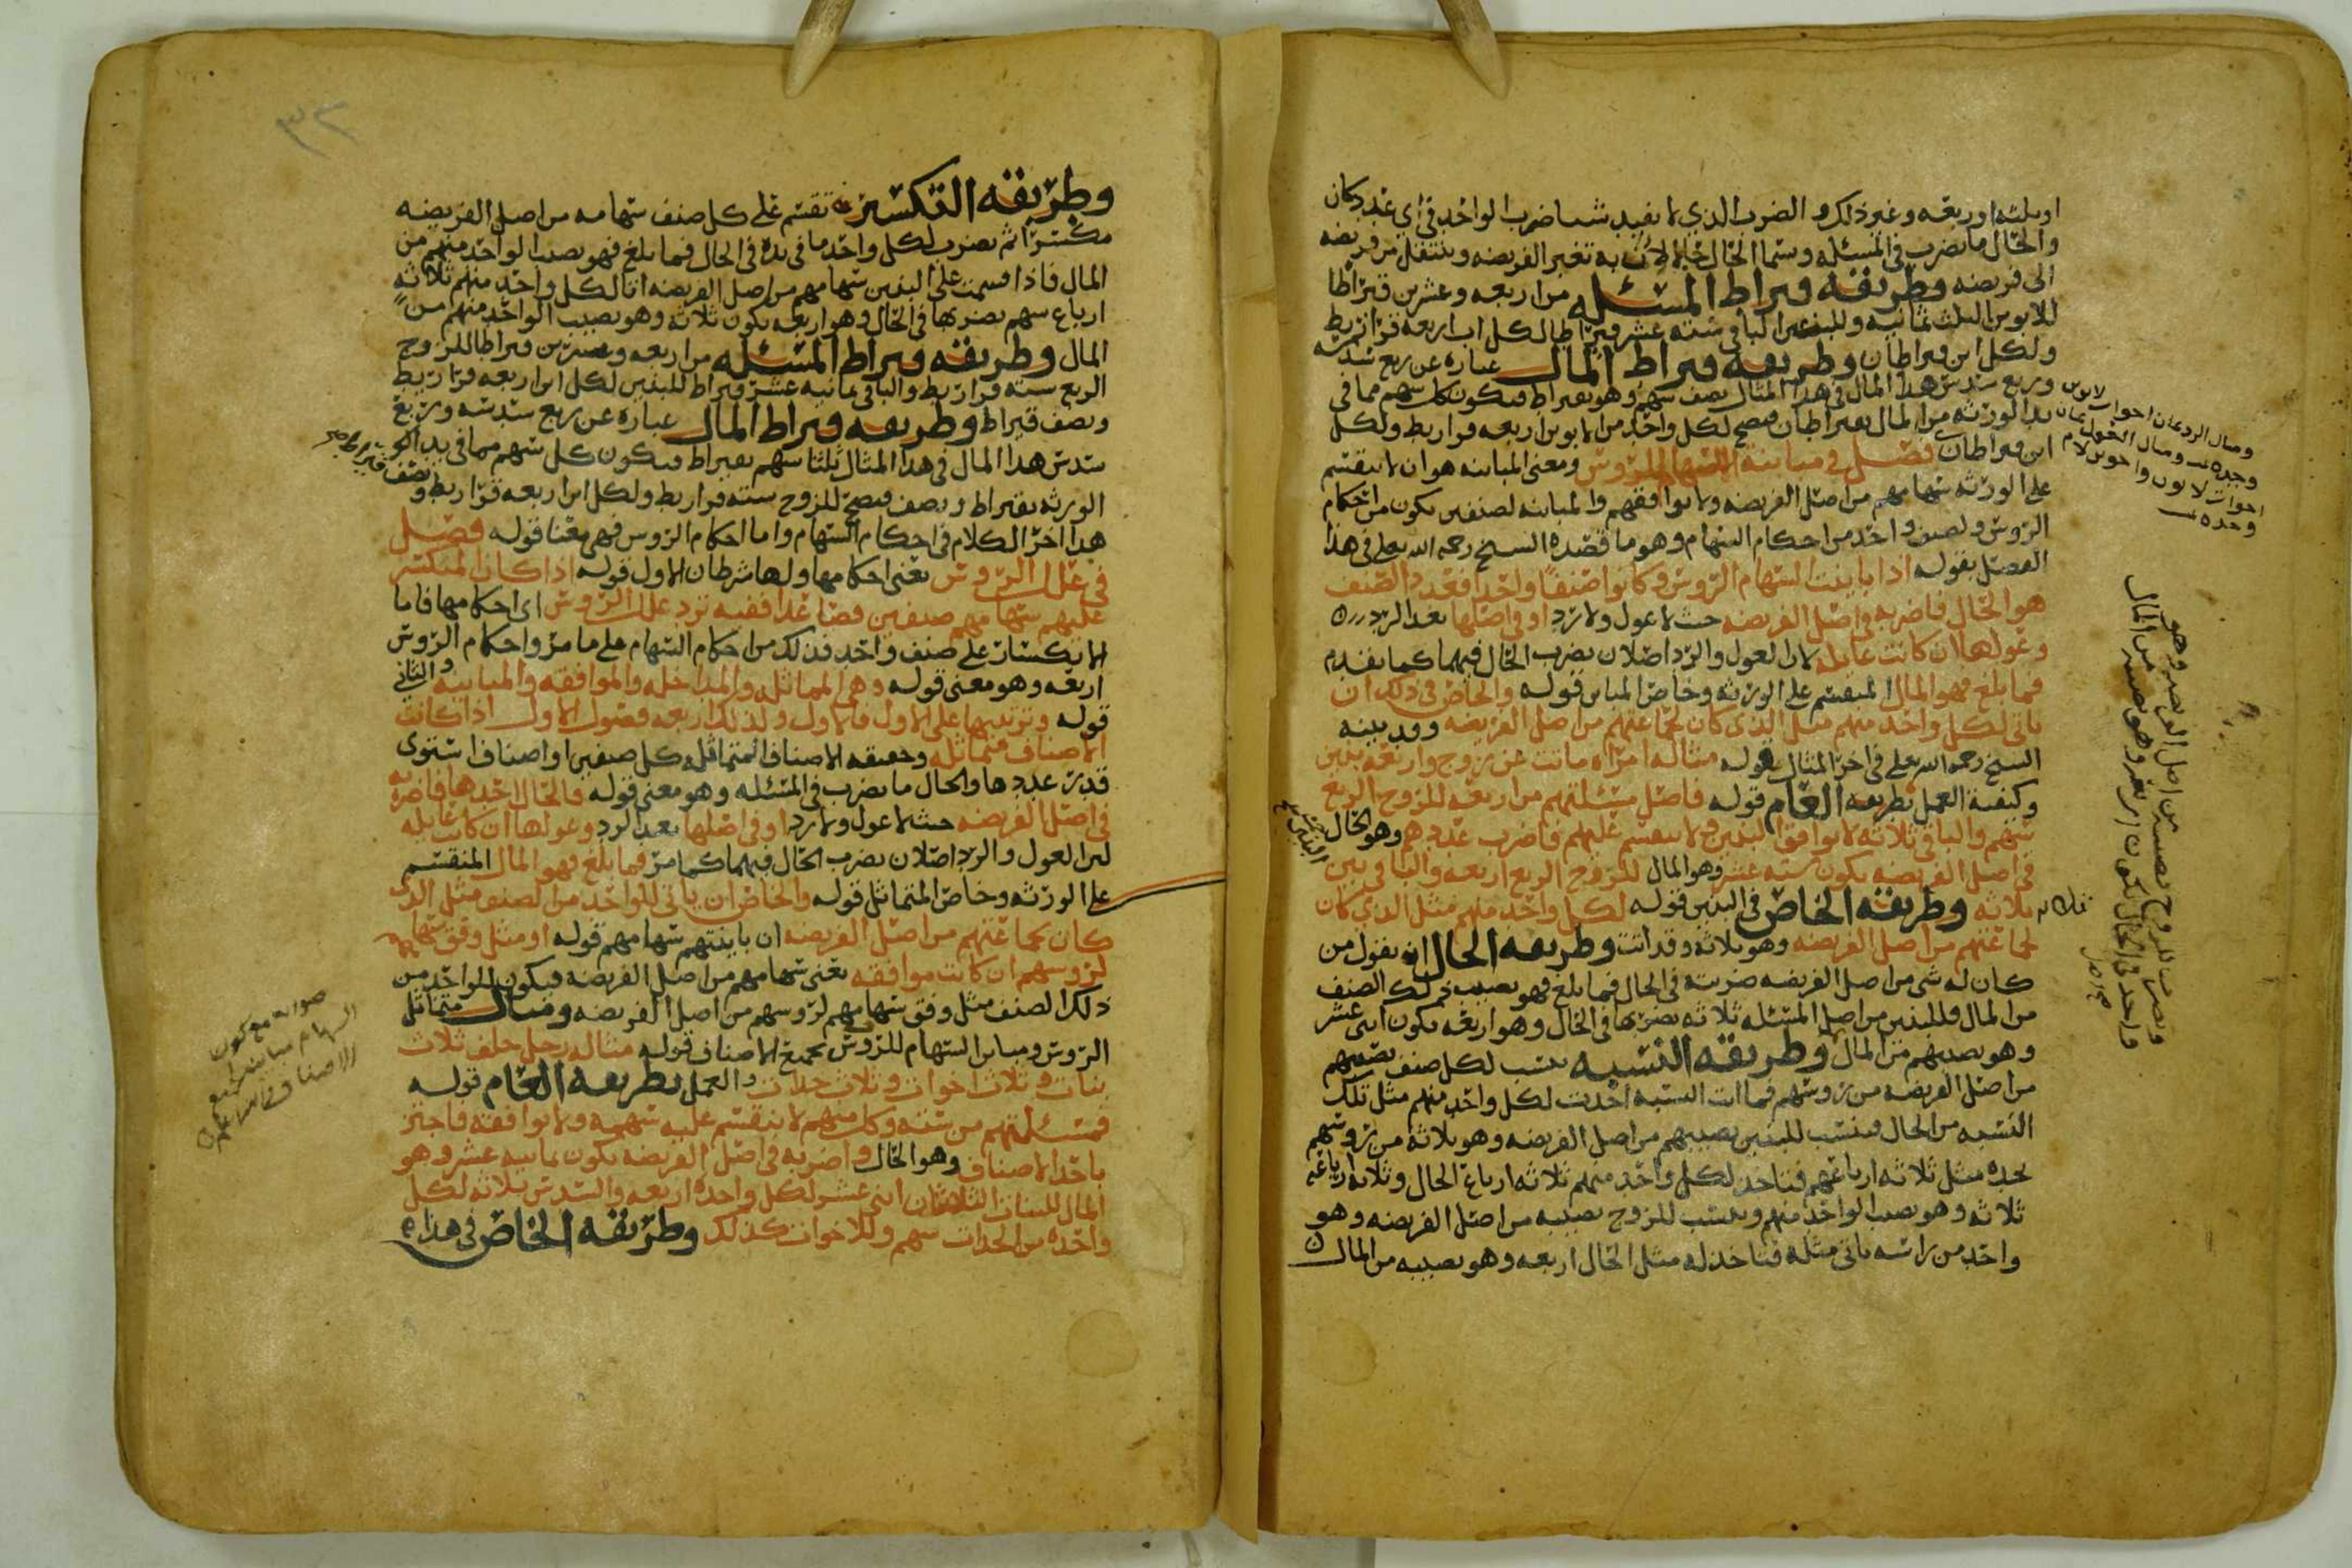 او ثلثه او ربعه وغير ذلك و الضرب الذي لا يفيد شيا ضرب الواحد في اي عدد كان
والحال ما يضرب في المسئله وسما الحال حالا لان به تتغير الفريضه وينتقل من فريضه
الى فريضه وطريقه قيراط المسئله من اربعه وعشرين قيراطا
للابوين الثلث ثمانيه وللبنين الباقي سته عشر قيراطا لكل اب اربعه قراريط
ولكل ابن قيراطان وطريقه قيراط المال عباره عن ربع سدسه
وربع سدس هذا المال في هذا المثال نصف سهم وهو بقيراط فيكون كل سهم مما في
يد الورثه من المال بقيراطان فيصح لكل واحد من الابوين اربعه قراريط ولكل
ابن قيراطان فصل في مباينه السهام للروس ومعنى المباينه هو ان لا ينقسم
على الورثه سهامهم من اصل الفريضه ولا يوافقهم والمباينه لصنفين يكون من احكام
الروس ولصنف واحد من احكام السهام وهو ما قصده الشيخ رحمه الله تعلى في هذا
الفصل بقوله اذا باينت السهام الروس وكانوا صنفا واحدا فعدد الصنف
هو الحال فاضربه في اصل الفريضه حيث لا عول ولا رد او في اصلها بعد الرد
وعولها ان كانت عايله لان العول والرد اصلان يضرب الحال فيهما كما تقدم
فما بلغ فهو المال المنقسم على الورثه وخاص المباين قوله والخاص في ذلك ان
ياتي لكل واحد منهم مثل الذي كان لجماعتهم من اصل الفريضه وقد بينه
الشيخ رحمه الله تعلى في اخر المثال بقوله مثاله امراه ماتت عن زوج واربعه بنين
وكيفية العمل بطريقه العام قوله فاصل مسئلتهم من اربعه للزوج الربع
سهم والباقي ثلاثه لا توافق البنين ولا تنقسم عليهم فاضرب عددهم وهو الحال
في اصل الفريضه يكون سته عشر وهو المال للزوج الربع اربعه والباقي بين
ثلاثه وطريقه الخاص في البنين قوله لكل واحد منهم مثل الذي كان
لجماعتهم من اصل الفريضه وهو ثلاثه وقد اتت وطريقه الحال ان تقول من
كان له شي من اصل الفريضه ضربته في الحال فما بلغ فهو نصيب ذلك الصنف
من المال فللبنين من اصل المسئله ثلاثه يضربها في الحال وهو اربعه يكون اثني عشر
وهو نصيبهم من المال وطريقه النسبه تنسب لكل صنف نصيبهم
من اصل الفريضه من روسهم فما اتت النسبه اخذت لكل واحد منهم مثل تلك
النسبه من الحال فينسب للبنين نصيبهم من اصل الفريضه وهو ثلاثه من روسهم
تجده مثل ثلاثه ارباعهم فتاخذ لكل واحد منهم ثلاثه ارباع الحال وثلاثه ارباعه
ثلاثه وهو نصيب الواحد منهم وينسب للزوج نصيبه من اصل الفريضه وهو
واحد من راسه ياتي مثله فتاخذ له مثل الحال اربعه وهو نصيبه من المال
ومثال الرد ثمان اخوات لابوين
وجده ومثال العول ثمان
اخوات لابوين واخوين لام
وجده
وطريقه التكسير تقسم على كل صنف سهامه من اصل الفريضه
مكسرا ثم يضرب لكل واحد ما في يده في الحال فما بلغ فهو نصيب الواحد منهم من
المال فاذا قسمت على البنين سهامهم من اصل الفريضه اتا لكل واحد منهم ثلاثه
ارباع سهم يضربها في الحال وهو اربعه يكون ثلاثه وهو نصيب الواحد منهم من
المال وطريقه قيراط المسئله من اربعه وعشرين قيراطا للزوج
الربع سته قراريط والباقي ثمانيه عشر قيراط للبنين لكل ابن اربعه قراريط
ونصف قيراط وطريقه قيراط المال عباره عن ربع سدسه وربع
سدس هذا المال في هذا المثال ثلثا سهم بقيراط فيكون كل سهم مما في يد
الورثه بقيراط ونصف فيصح للزوج سته قراريط ولكل ابن اربعه قراريط ونصف
هذا اخر الكلام في احكام السهام واما احكام الروس فهي معنا قوله فصل
في علل الروس يعني احكامها ولها شرطان الاول قوله اذا كان المنكسر
عليهم سهامهم صنفين فصاعدا ففيه ترد علل الروس اي احكامها فاما
الانكسار على صنف واحد فذلك من احكام السهام على ما مر واحكام الروس
اربعه وهو معنى قوله وهي المماثله والمداخله والموافقه والمباينه والثاني
قوله وترتيبها على الاول فالاول ولذلك اربعه فصول الاول اذا كانت
الاصناف متماثله وحقيقه الاصناف المتماثله كل صنفين او اصناف استوى
قدر عددها والحال ما يضرب في المسئله وهو معنى قوله فالحال احدها فاضربه
في اصل الفريضه حيث لا عول ولا رد او في اصلها بعد الرد وعولها ان كانت عايله
لان العول والرد اصلان يضرب الحال فيهما كما مر فما بلغ فهو المال المنقسم
على الورثه وخاص المتماثل قوله والخاص ان ياتي للواحد من الصنف مثل الذي
كان لجماعتهم من اصل الفريضه ان باينتهم سهامهم قوله او مثل وفق سهامهم
لروسهم ان كانت موافقه يعني سهامهم من اصل الفريضه فيكون للواحد من
ذلك الصنف مثل وفق سهامهم لروسهم من اصل الفريضه ومثال متماثل
الروس ومباين السهام للروس بجميع الاصناف قوله مثاله رجل خلف ثلاث
بنات وثلاث اخوات وثلاث جدات والعمل بطريقه العام قوله
فمسئلتهم من سته وكل منهم لا ينقسم عليه سهمه ولا توافقه فاجتز
باحد الاصناف وهو الحال واضربه في اصل الفريضه يكون ثمانيه عشر وهو
المال للبنات الثلثان اثني عشر لكل واحده اربعه والسدس ثلاثه لكل
واحده من الجدات سهم وللاخوات كذلك وطريقه الخاص في هذا
صوابه مع كون
السهام مباينه لجميع